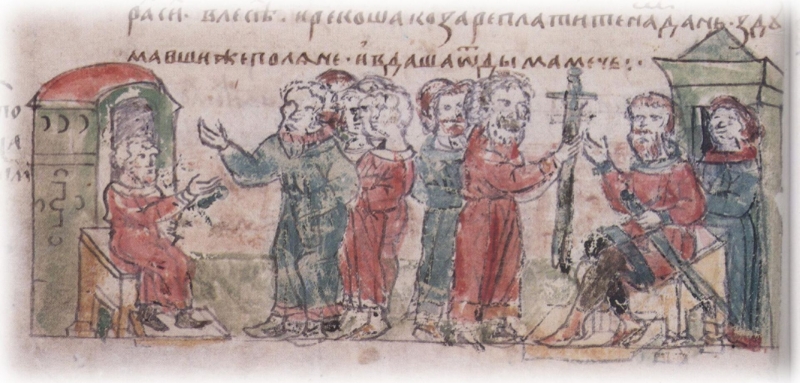 раси · влесѣ · и рекоша козаре платите на дань · зду
мавшиже поляне · и вдаша ѿ дыма мечь :·